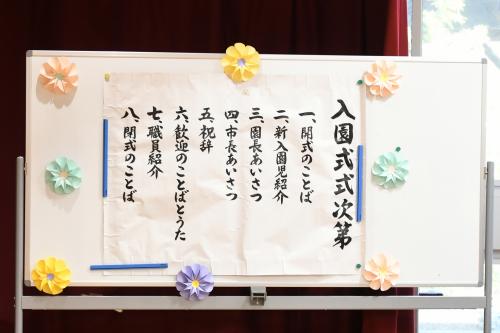 入園式式次第
一、開式のことば
二、新入園児紹介
三、園長あいさつ
四、市長あいさつ
五、祝辞
六、歓迎のことばとうた
七、職員紹介
八、閉式のことば